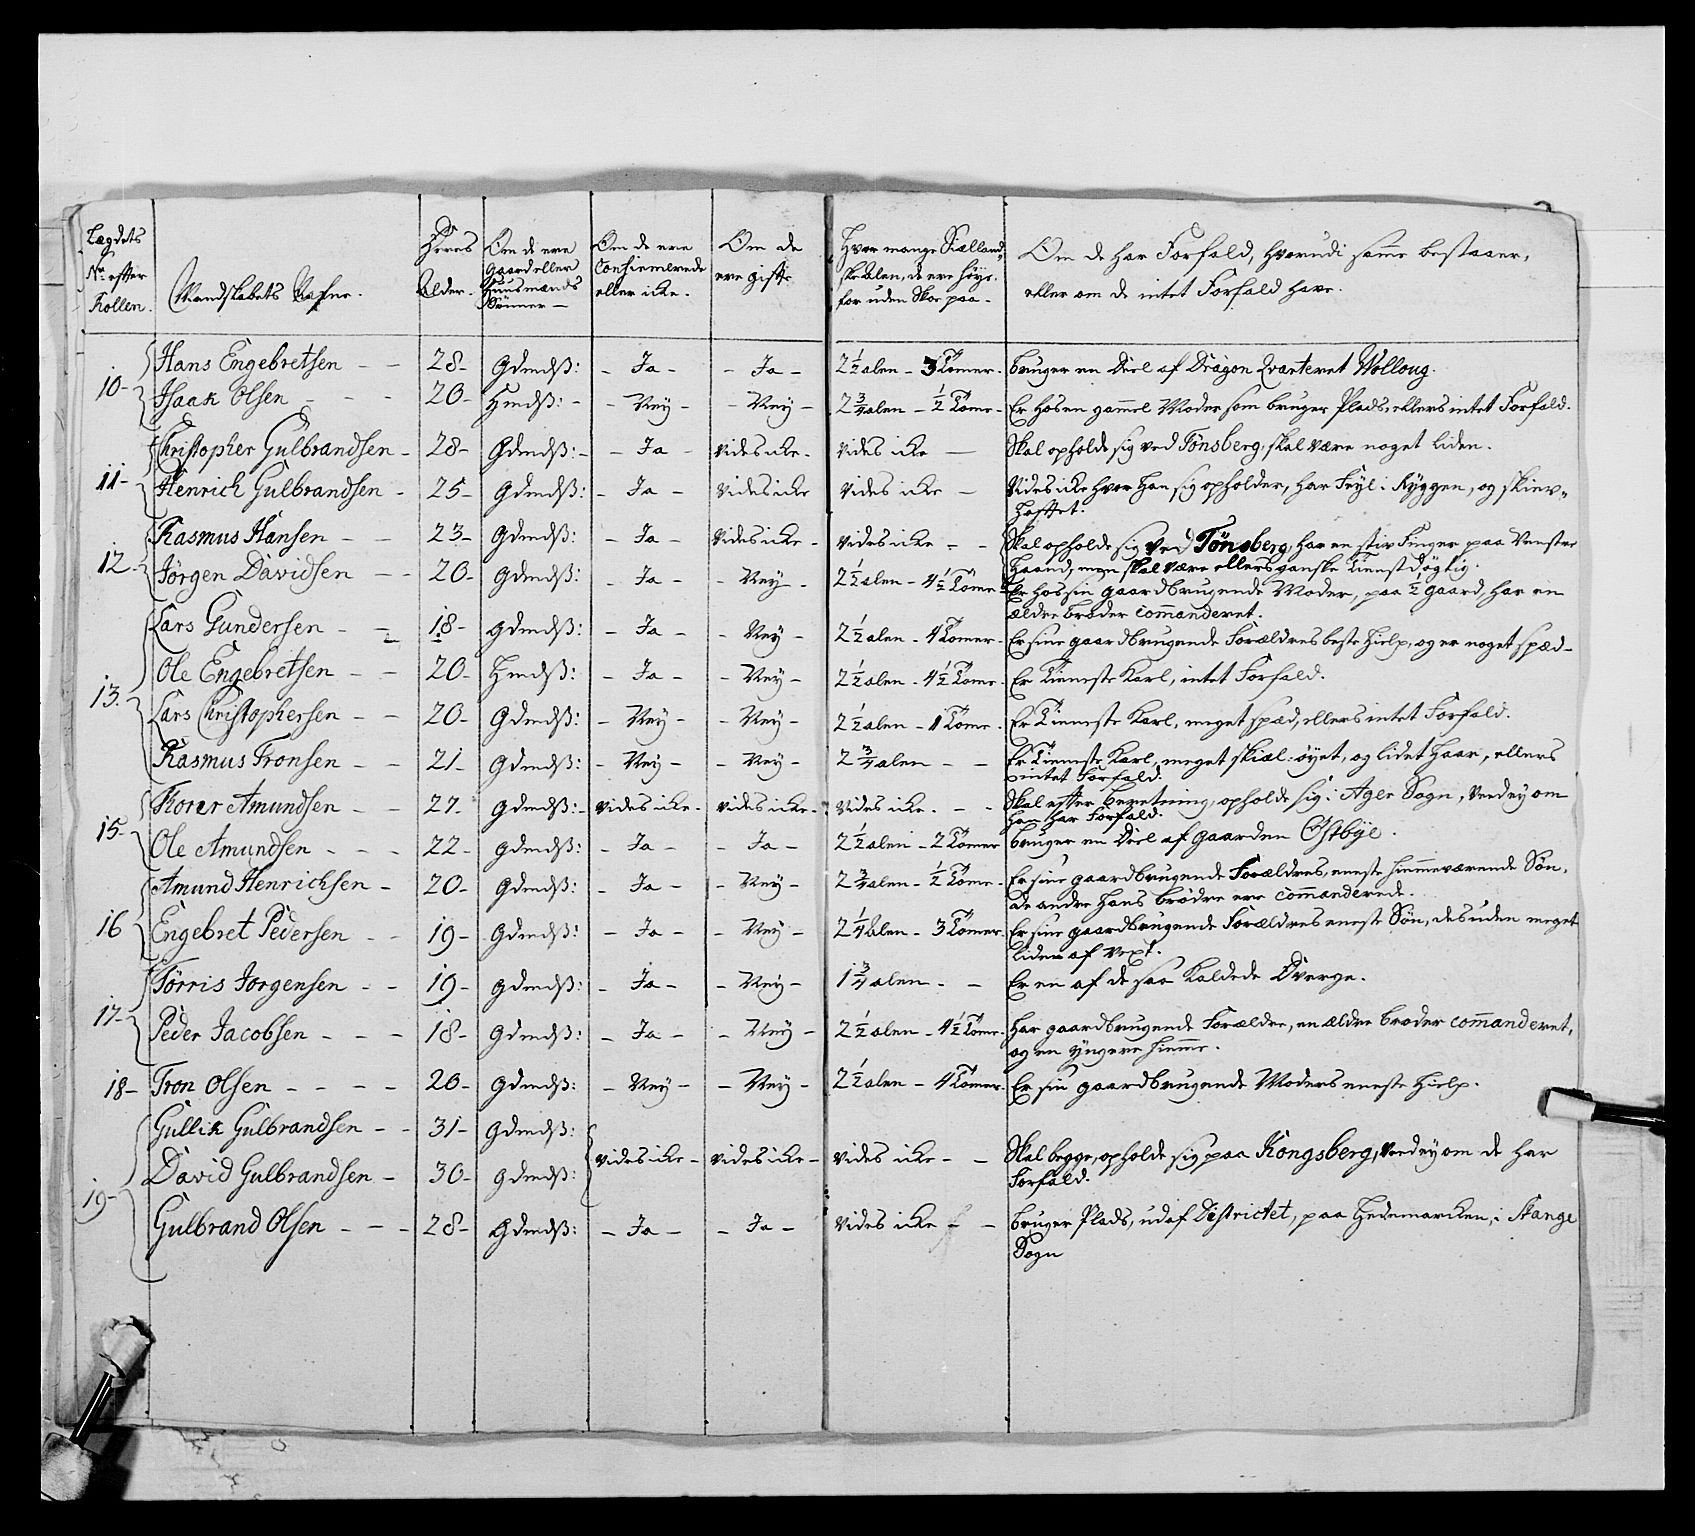 Lægdets No. efter Rollen. | Mandskabets Nafne. | Deres Alder. | Om de ere Gaard eller Huusmands Sønner — | Om de ere Confirmerede eller icke. | Om de ere gifte | Hvor mange Siællandske Alen, de ere høye, for uden Skoe paa — | Om de har Forfald, hvorudi samme bestaaer, eller om de intet Forfald have.
10 - Hans Engebretsen - - 28 - Gdmdß: - Ja - - Ja - 2 1/2 alen - 3 Tomer - bruger en Deel af Dragon Qvarteret Wolloug.
Isaak Olsen - - - 20 - Hmdß: - - Ney - - Ney - 2 3/4 alen - 1/2 Tome - Er hos en gammel Moder som bruger Plads, ellers intet Forfald.
11 - Christopher Gulbrandsen - 28 - Gdmdß: - - Ja - vides icke - vides icke — Skal opholde sig ved Tønsberg, skal være noget liden.
Henrich Gulbrandsen - 25 - Gdmdß: - Ja - vides icke vides icke — Vides icke hvor han sig opholder, har Feyl i Ryggen, og skiev-
hoftet.
12 - Rasmus Hansen - - 23 - Gdmdß: - Ja - vides icke - vides icke - - Skal opholde sig ved Tønsberg, har en stiv Finger paa Venstre
Haand, men skal være ellers ganske tienstdygtig.
Jørgen Davidsen - - 20 - Gdmdß: - Ja - - Ney - 2 1/2 alen - 4 1/2 Tome - Er hos sin gaardbrugende Moder, paa 1/2 gaard, har en
ældre broder commanderet.
13. Lars Gundersen - - 18 - Gdmdß: - Ja - - Ney - 2 1/2 alen - 4 Tomer - Er sine gaardbrugende Forældres beste hielp, og er noget spæd -
Ole Engebretsen - - 20 - Hmdß: - Ja - - Ney - 2 1/2 alen - 4 1/2 Tome - Er Tieneste Karl, intet Forfald.
Lars Christophersen - - 20 - Gdmdß: - Ney - - Ney - 2 1/2 alen - 1 Tome - Er Tieneste Karl, meget spæd, ellers intet Forfald.
Rasmus Tronsen - - 21 - Gdmdß: - Ney - - Ney - 2 3/4 alen - - Er Tieneste Karl, meget skiæl-øyet, og lidet haar, ellers
intet Forfald.
15 - Amundsen - - 27 - Gdmdß: - vides icke - vides icke - vides icke. - - Skal efter beretning, opholde sig i Ager Sogn, veed ey om
han har Forfald.
Ole Amundsen - - - 22 - Gdmdß: - Ja - - Ja - 2 1/2 alen - 2 Tomer bruger en Deel af gaarden Østbye.
16 Amund Henrichsen - 20 - Gdmdß: - Ja - - Ney - 2 3/4 alen - 1/2 Tome - Er sine gaardbrugende Forældres, eneste hiemmeværende Søn,
de andre hans brødre ere commanderede.
Engebret Pedersen - - 19 - Gdmdß: - Ja - - Ney - 2 1/4 alen - 3 Tomer. Er sine gaardbrugende Forældres eneste Søn, desuden meget
liden af vext.
17 - Tørris Jorgensen - - 19 - Gdmdß: - Ja - - Ney - 1 3/4 alen - - Er en af de saa kaldede Dverge.
Peder Jacobsen - - - 18 - Gdmdß: - Ja - - Ney - 2 1/2 alen - 4 1/2 Tome. har gaardbrugende Forældre, en ældre broder commanderet,
og en yngere hiemme.
18 - Tron Olsen - - - - 20 - Gdmdß: - Ney - - Ney - 2 1/2 alen - 4 Tomer. Er sin gaardbrugende Moders eneste hielp.
19 - Gullik Gulbrandsen - - 31 - Gdmdß:
David Gulbrandsen - 30 - Gdmdß: vides icke - vides icke - vides icke - - Skal begge, opholde sig paa Kongsberg, veed ey om de har
Forfald.
Gulbrand Olsen - - - 28 - Gdmdß: - Ja - - Ja - vides icke - - bruger Plads, udaf Districtet, paa Hedemarcken, i Stange
Sogn